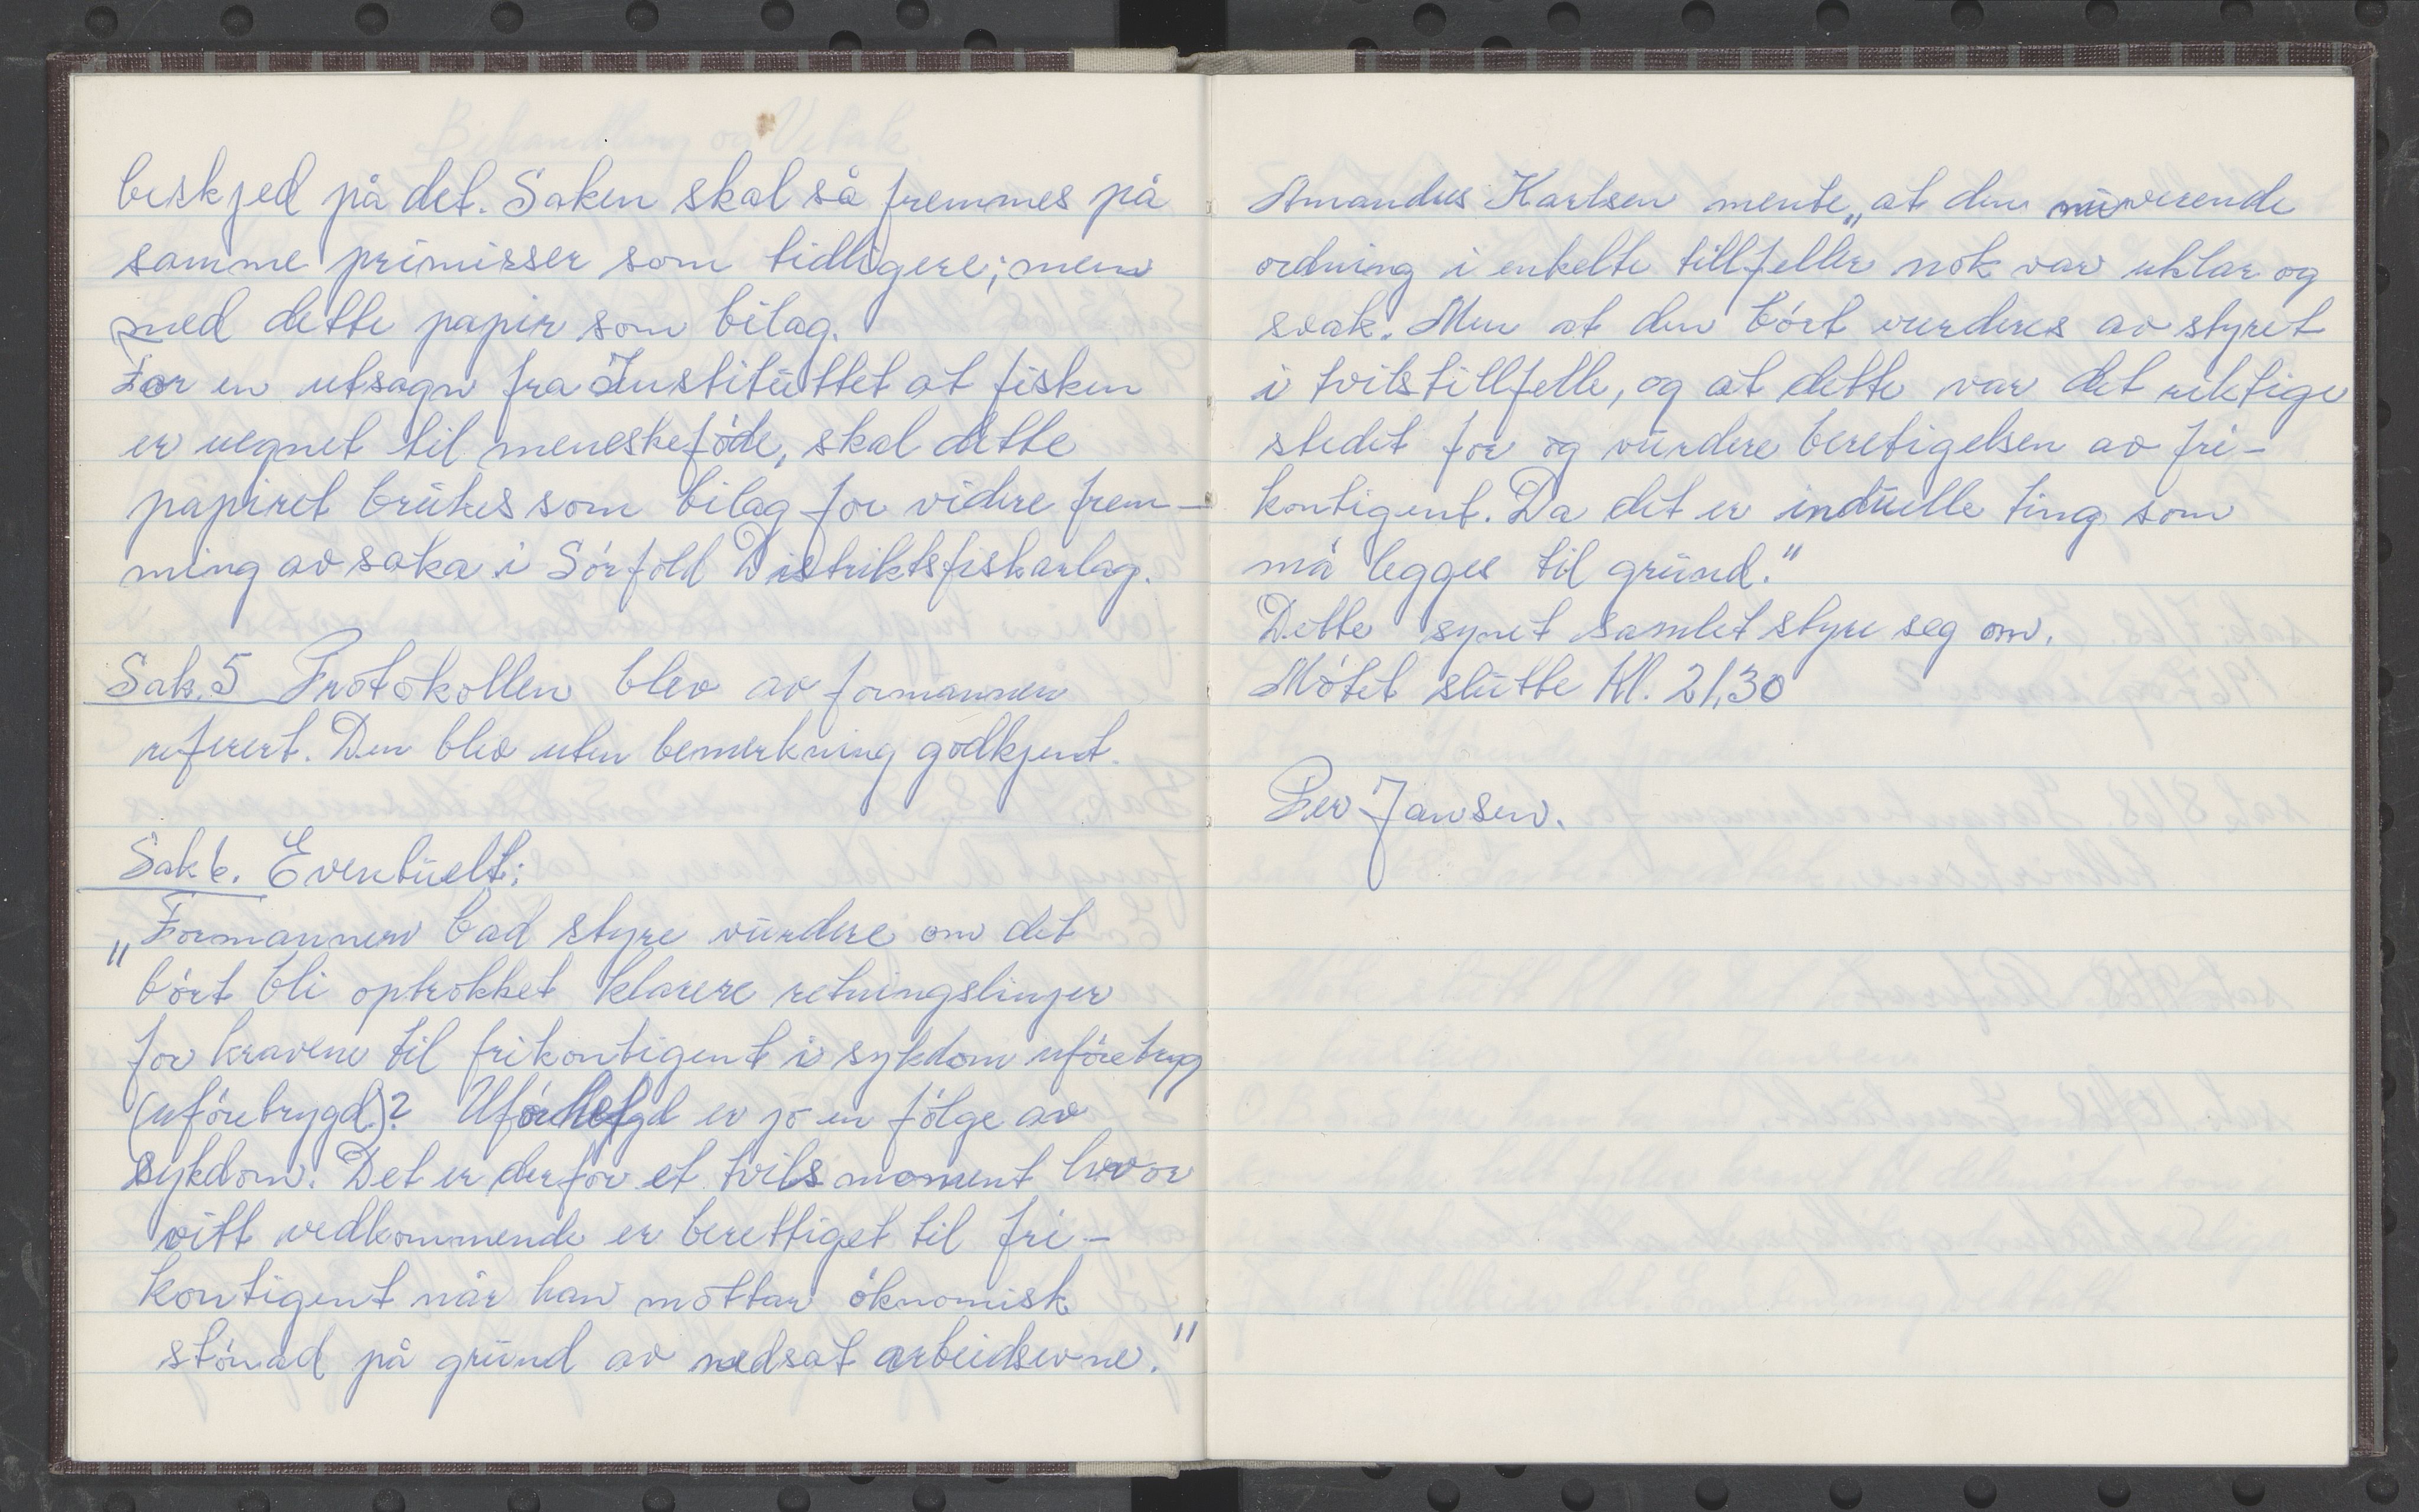 beskjed på det. Saken skal så fremmes på
samme primisser som tidligere; men
med dette papir som bilag.
Før en utsagn fra Instituttet at fisken
er uegnet til meneskeføde, skal dette
papiret brukes som bilag for videre frem-
ming av saka i Sørfold Distriktsfiskarlag.
Sak. 5 Protokollen blev av formannen
referert. Den blev uten bemerkning godkjent.
Sak 6. Eventuelt:
„Formannen bad styre vurdere om det
børt bli optrokket klarere retningslinjer
for kravene til frikontigent i sykdom uføretryg
(uføretrygd)? Uførhet er jo en følge av
sykdom. Det er derfor et tvilsmoment hvor
vitt vedkommende er berettiget til fri-
kontigent når han mottar øknomisk
stønad på grund av nedsat arbeidsevne."
Amandus Karlsen mente „at den nuverende
ordning i enkelte tillfeller nok var uklar og
svak. Men at den børt vurderes av styret
i tvilstillfelle, og at dette var det riktige
stedet for og vurdere beretigelsen av fri-
kontigent. Da det er induelle ting som
må legges til grund."
Dette synet samlet styre seg om.
Møtet slutte Kl. 21,30
Per Jansen.